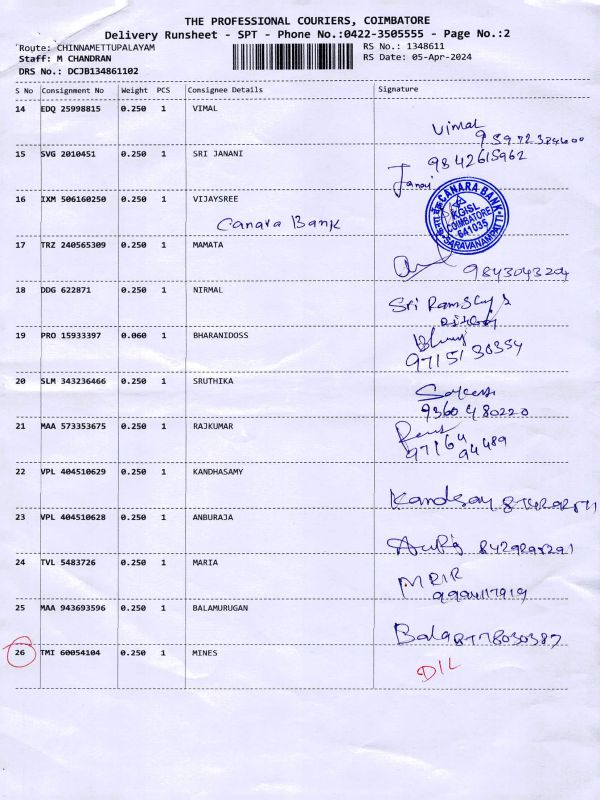 THE PROFESSIONAL COURIERS, COIMBATORE
Delivery Runsheet - SPT - Phone No.:0422-3505555 - Page No.:2
Route: CHINNAMETTUPALAYAM RS No.: 1348611
Staff: M CHANDRAN RS Date: 05-Apr-2024
DRS No.: DCJB134861102
S No Consignment No Weight PCS Consignee Details Signature
14 EDQ 25998815 0.250 1 VIMAL
Vimal
15 SVG 2010451 0.250 1 SRI JANANI
9842615962
Janani
16 IXM 506160250 0.250 1 VIJAYSREE
Canara Bank
CANARA BANK
KGISL
COIMBATORE
641035
SARAVANAMPATTI
17 TRZ 240565309 0.250 1 MAMATA
9843043204
18 DDG 622871 0.250 1 NIRMAL
Sri
19 PRO 15933397 0.060 1 BHARANIDOSS
9715130354
20 SLM 343236466 0.250 1 SRUTHIKA
9360480220
21 MAA 573353675 0.250 1 RAJKUMAR
97164
94489
22 VPL 404510629 0.250 1 KANDHASAMY
Kandsay
23 VPL 404510628 0.250 1 ANBURAJA
24 TVL 5483726 0.250 1 MARIA
9994117919
25 MAA 943693596 0.250 1 BALAMURUGAN
Bala 8778030387
26 TMI 60054104 0.250 1 MINES
DIL